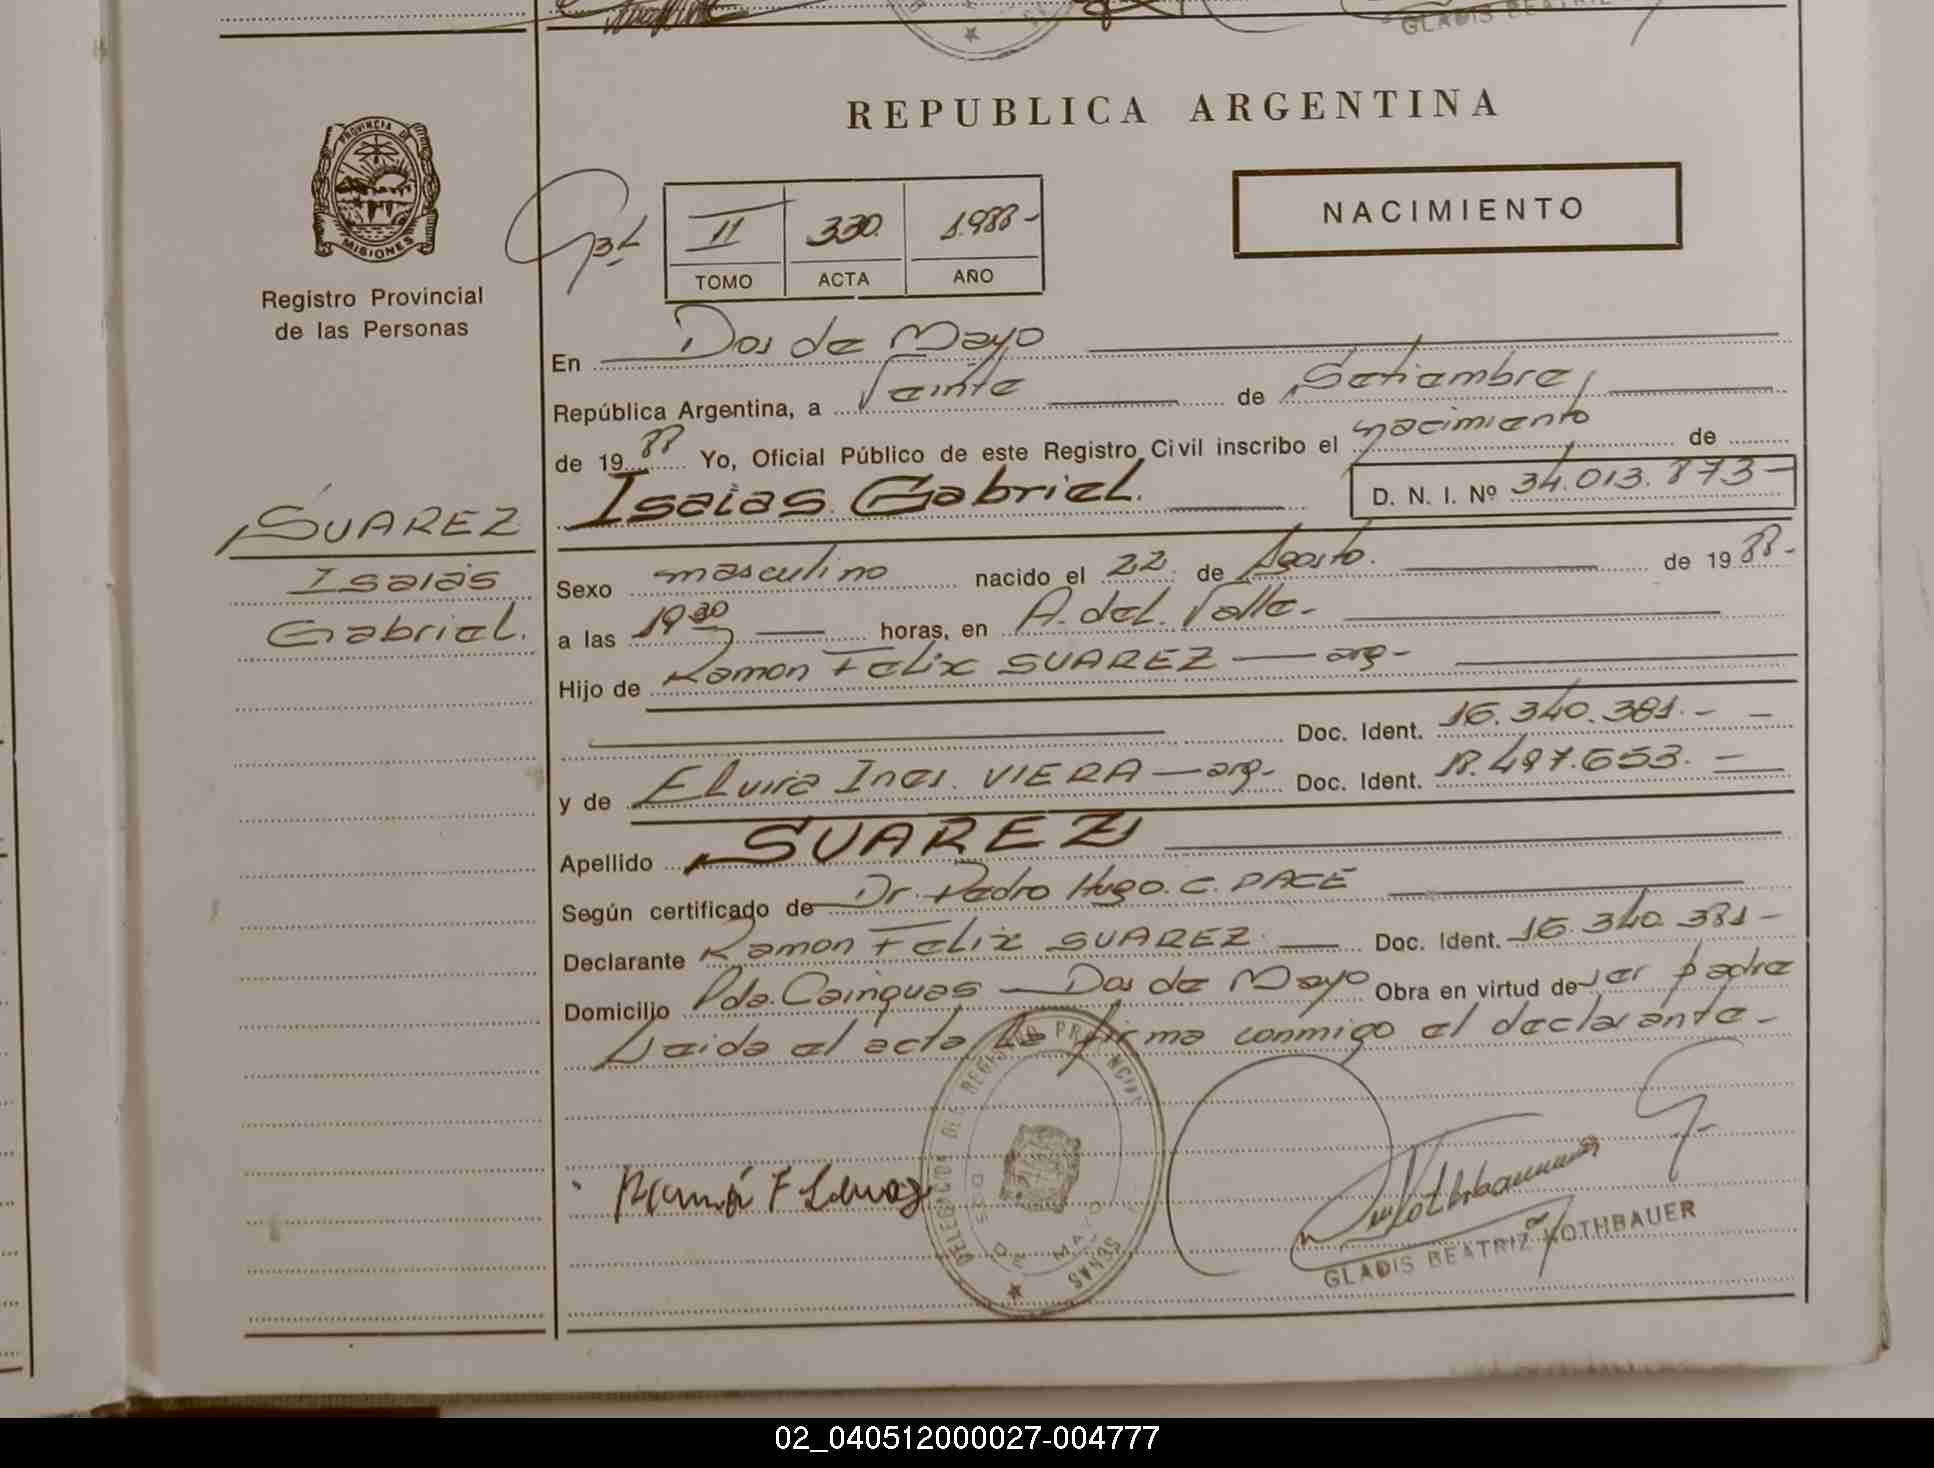 GLADIS BEATRIZ
REPUBLICA ARGENTINA
PROVINCIA DE
MISIONES
Registro Provincial
de las Personas
II 330. 1.988-
TOMO ACTA AÑO
NACIMIENTO
En Dos de Mayo
República Argentina, a Veinte de Setiembre,
de 1988 Yo, Oficial Público de este Registro Civil inscribo el nacimiento de
Isaías Gabriel. D. N. I. Nº 34.013.873-
SUAREZ
Isaías
Gabriel.
Sexo masculino nacido el 22. de Agosto. de 1988.-
a las 19 30 horas, en A. del. Valle.-
Hijo de Ramon Felix SUAREZ — arg-
Doc. Ident. 16.340.381.- —
y de Elvira Ines. VIERA — arg- Doc. Ident. 18.497.653. —
Apellido SUAREZ
Según certificado de Dr. Pedro Hugo. C. PACE
Declarante Ramon Felix SUAREZ. — Doc. Ident. 16.340.381-
Domicilio Pda. Cainguas — Dos de Mayo Obra en virtud de ser padre
Leida el acta la firma conmigo el declarante.-
DELEGACION DEL REGISTRO PROVINCIAL
DOS DE MAYO
Ramón F Suarez
GLADIS BEATRIZ KOTHBAUER
02_040512000027-004777